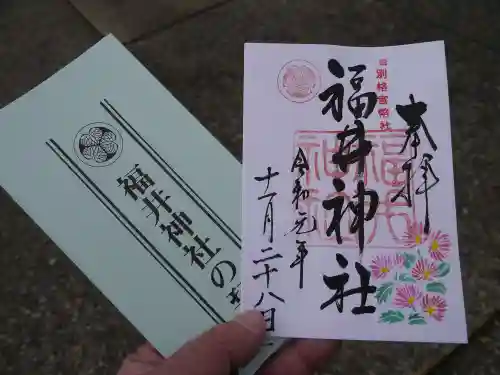 旧別格官幣社
奉拝
福井神社
福井神社
令和元年
十一月二十八日
福井神社の